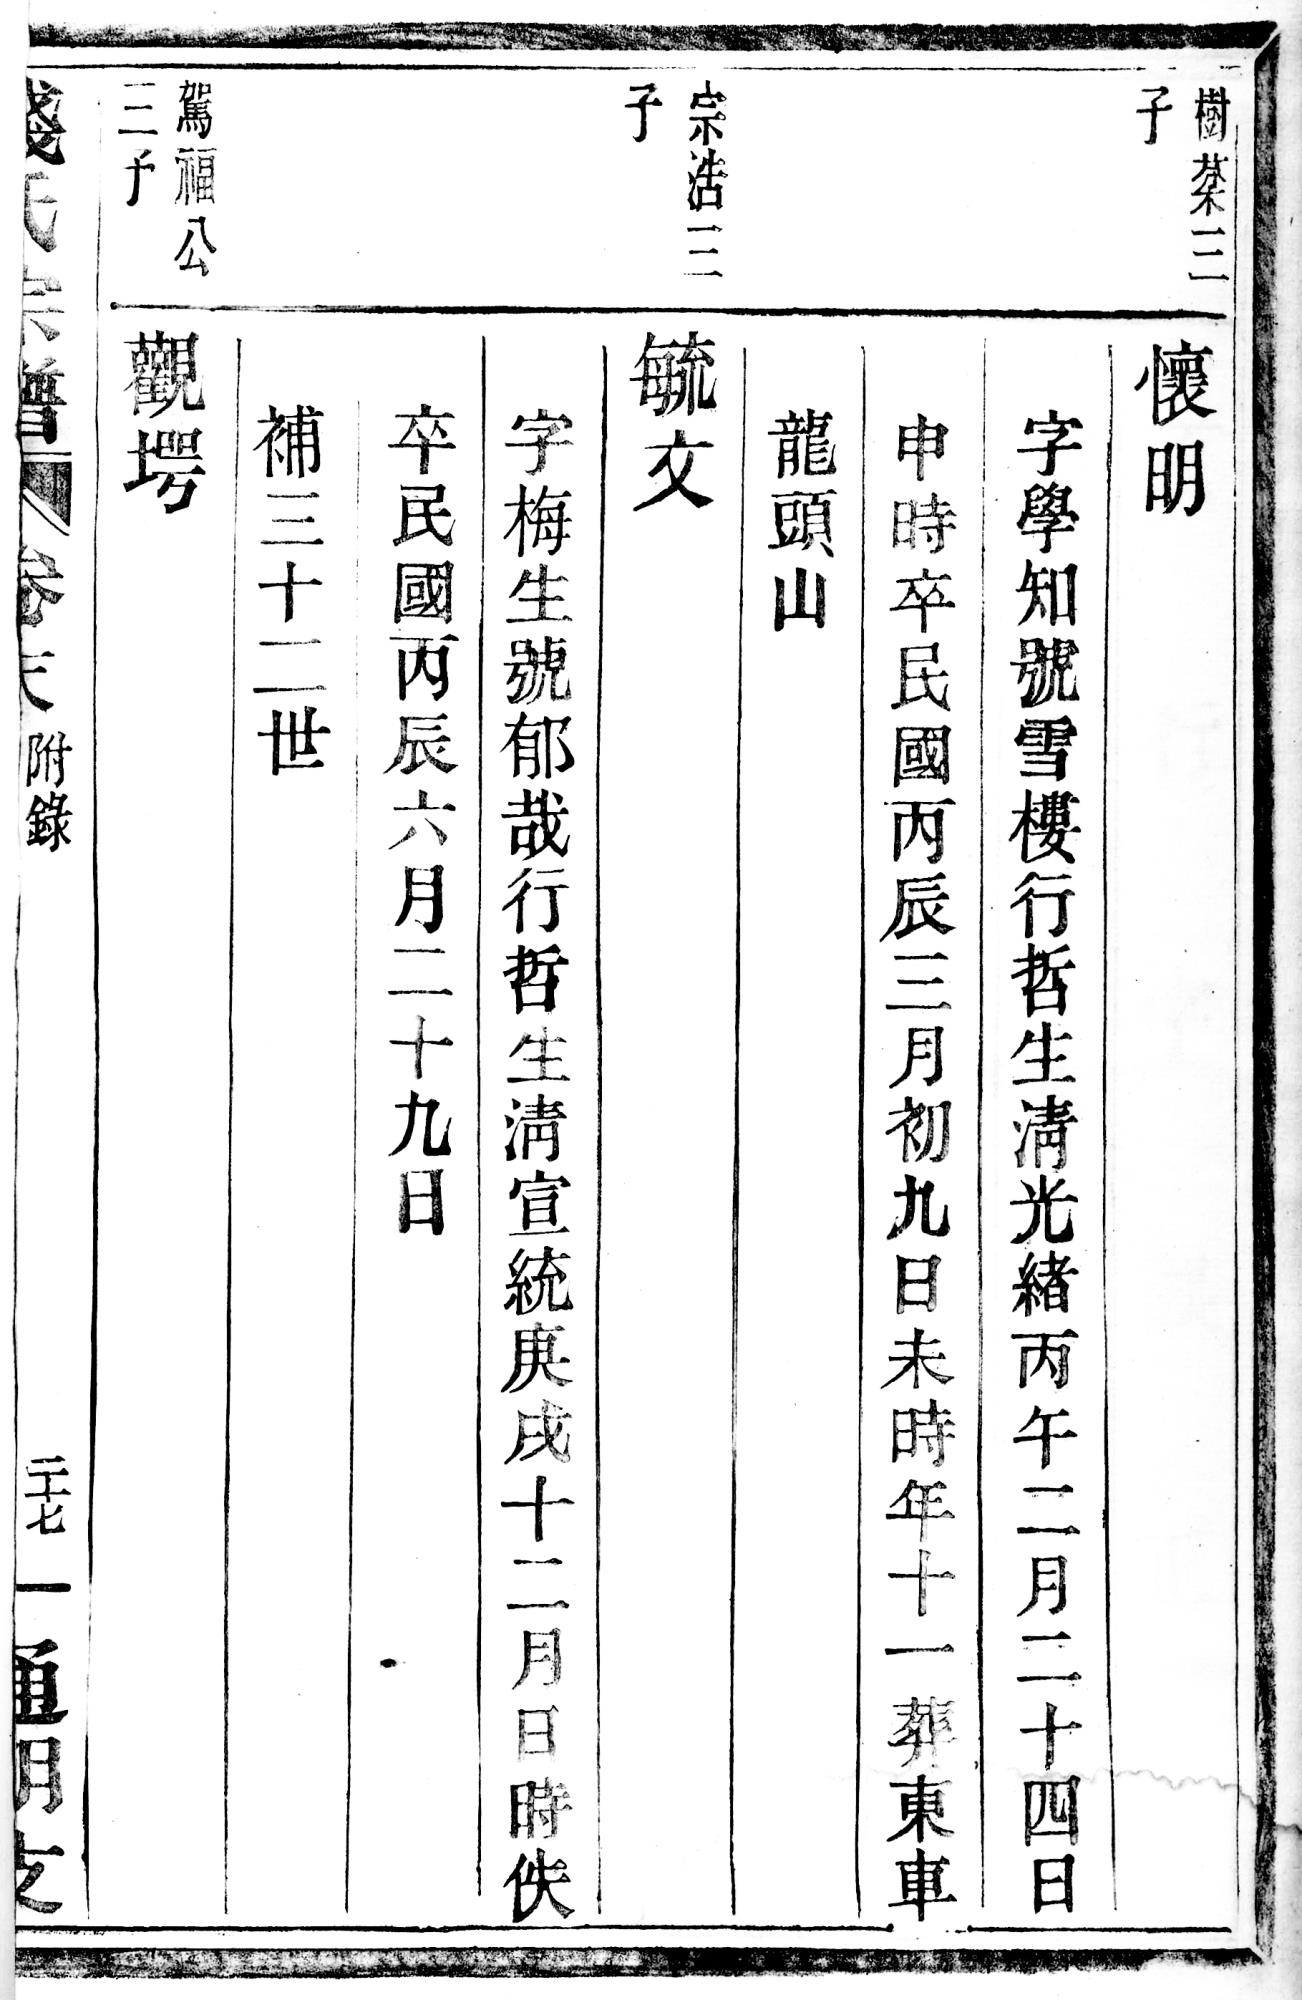 樹棻三
子
懷明
字學知號雪樓行哲生淸光緒丙午二月二十四日
申時卒民國丙辰三月初九日未時年十一葬東車
龍頭山
宗浩三
子
毓文
字梅生號郁哉行哲生淸宣統庚戌十二月日時佚
卒民國丙辰六月二十九日
補三十二世
駕福公
三子
觀堮
錢氏宗譜 卷末 附錄 二十七 通明支